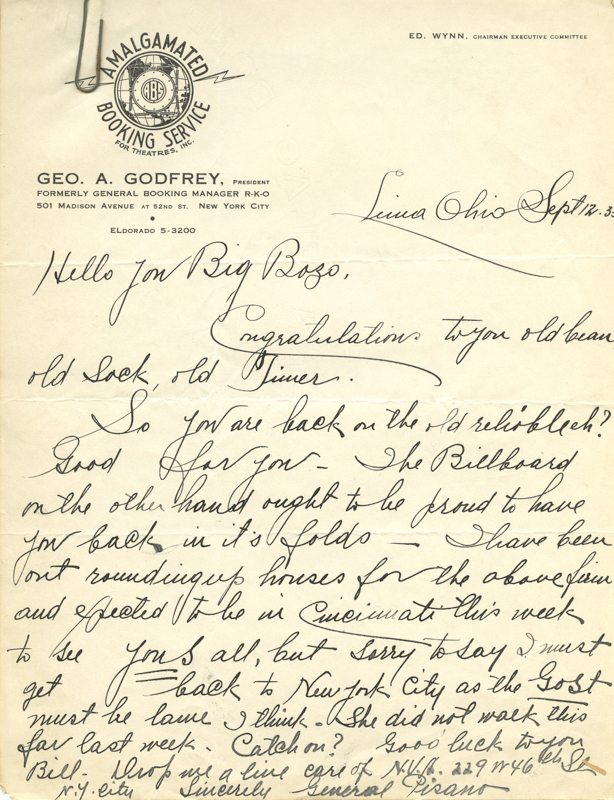 ED. WYNN. CHAIRMAN EXECUTIVE COMMITTEE
AMALGAMATED
ABS
BOOKING SERVICE
FOR THEATRES, INC.
GEO. A. GODFREY, PRESIDENT
FORMERLY GENERAL BOOKING MANAGER R-K-O
501 MADISON AVENUE AT 52ND ST. NEW YORK CITY
ELDORADO 5-3200
Lima Ohio Sept 12.33
Hello you Big Bozo,
Congratulations to you old bean
old sock, old Timer.
So you are back on the old
Good for you - The Billboard
on the other hand ought to be proud to have
you back in it's folds - I have been
out rounding up houses for the above firm
and expected to be in Cincinnati this week
to see yous all, but sorry to say I must
get back to New York City as the Gost
must be lame I think - She did not walk this
far last week - Catch on? Good luck to you
Bill - Drop me a line care of N.V.A. 229 W 46th St
N.Y. City Sincerely General Pisano